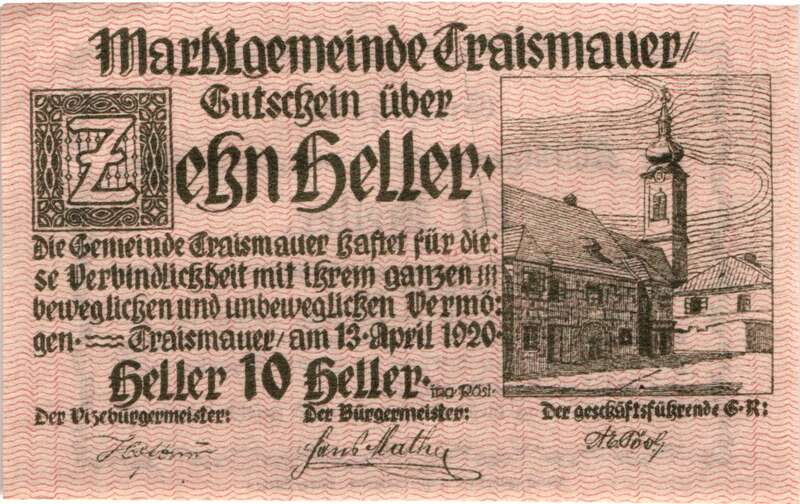 Marktgemeinde Traismauer//
Gutschein über
Zehn Heller.
Die Gemeinde Traismauer haftet für die:
se Verbindlichkeit mit ihrem ganzen
beweglichen und unbeweglichen Vermö:
gen. Traismauer/ am 13. April 1920.
Heller 10 Heller.
Der Vizebürgermeister: Der Bürgermeister: Der geschäftsführende G. R:
Hans